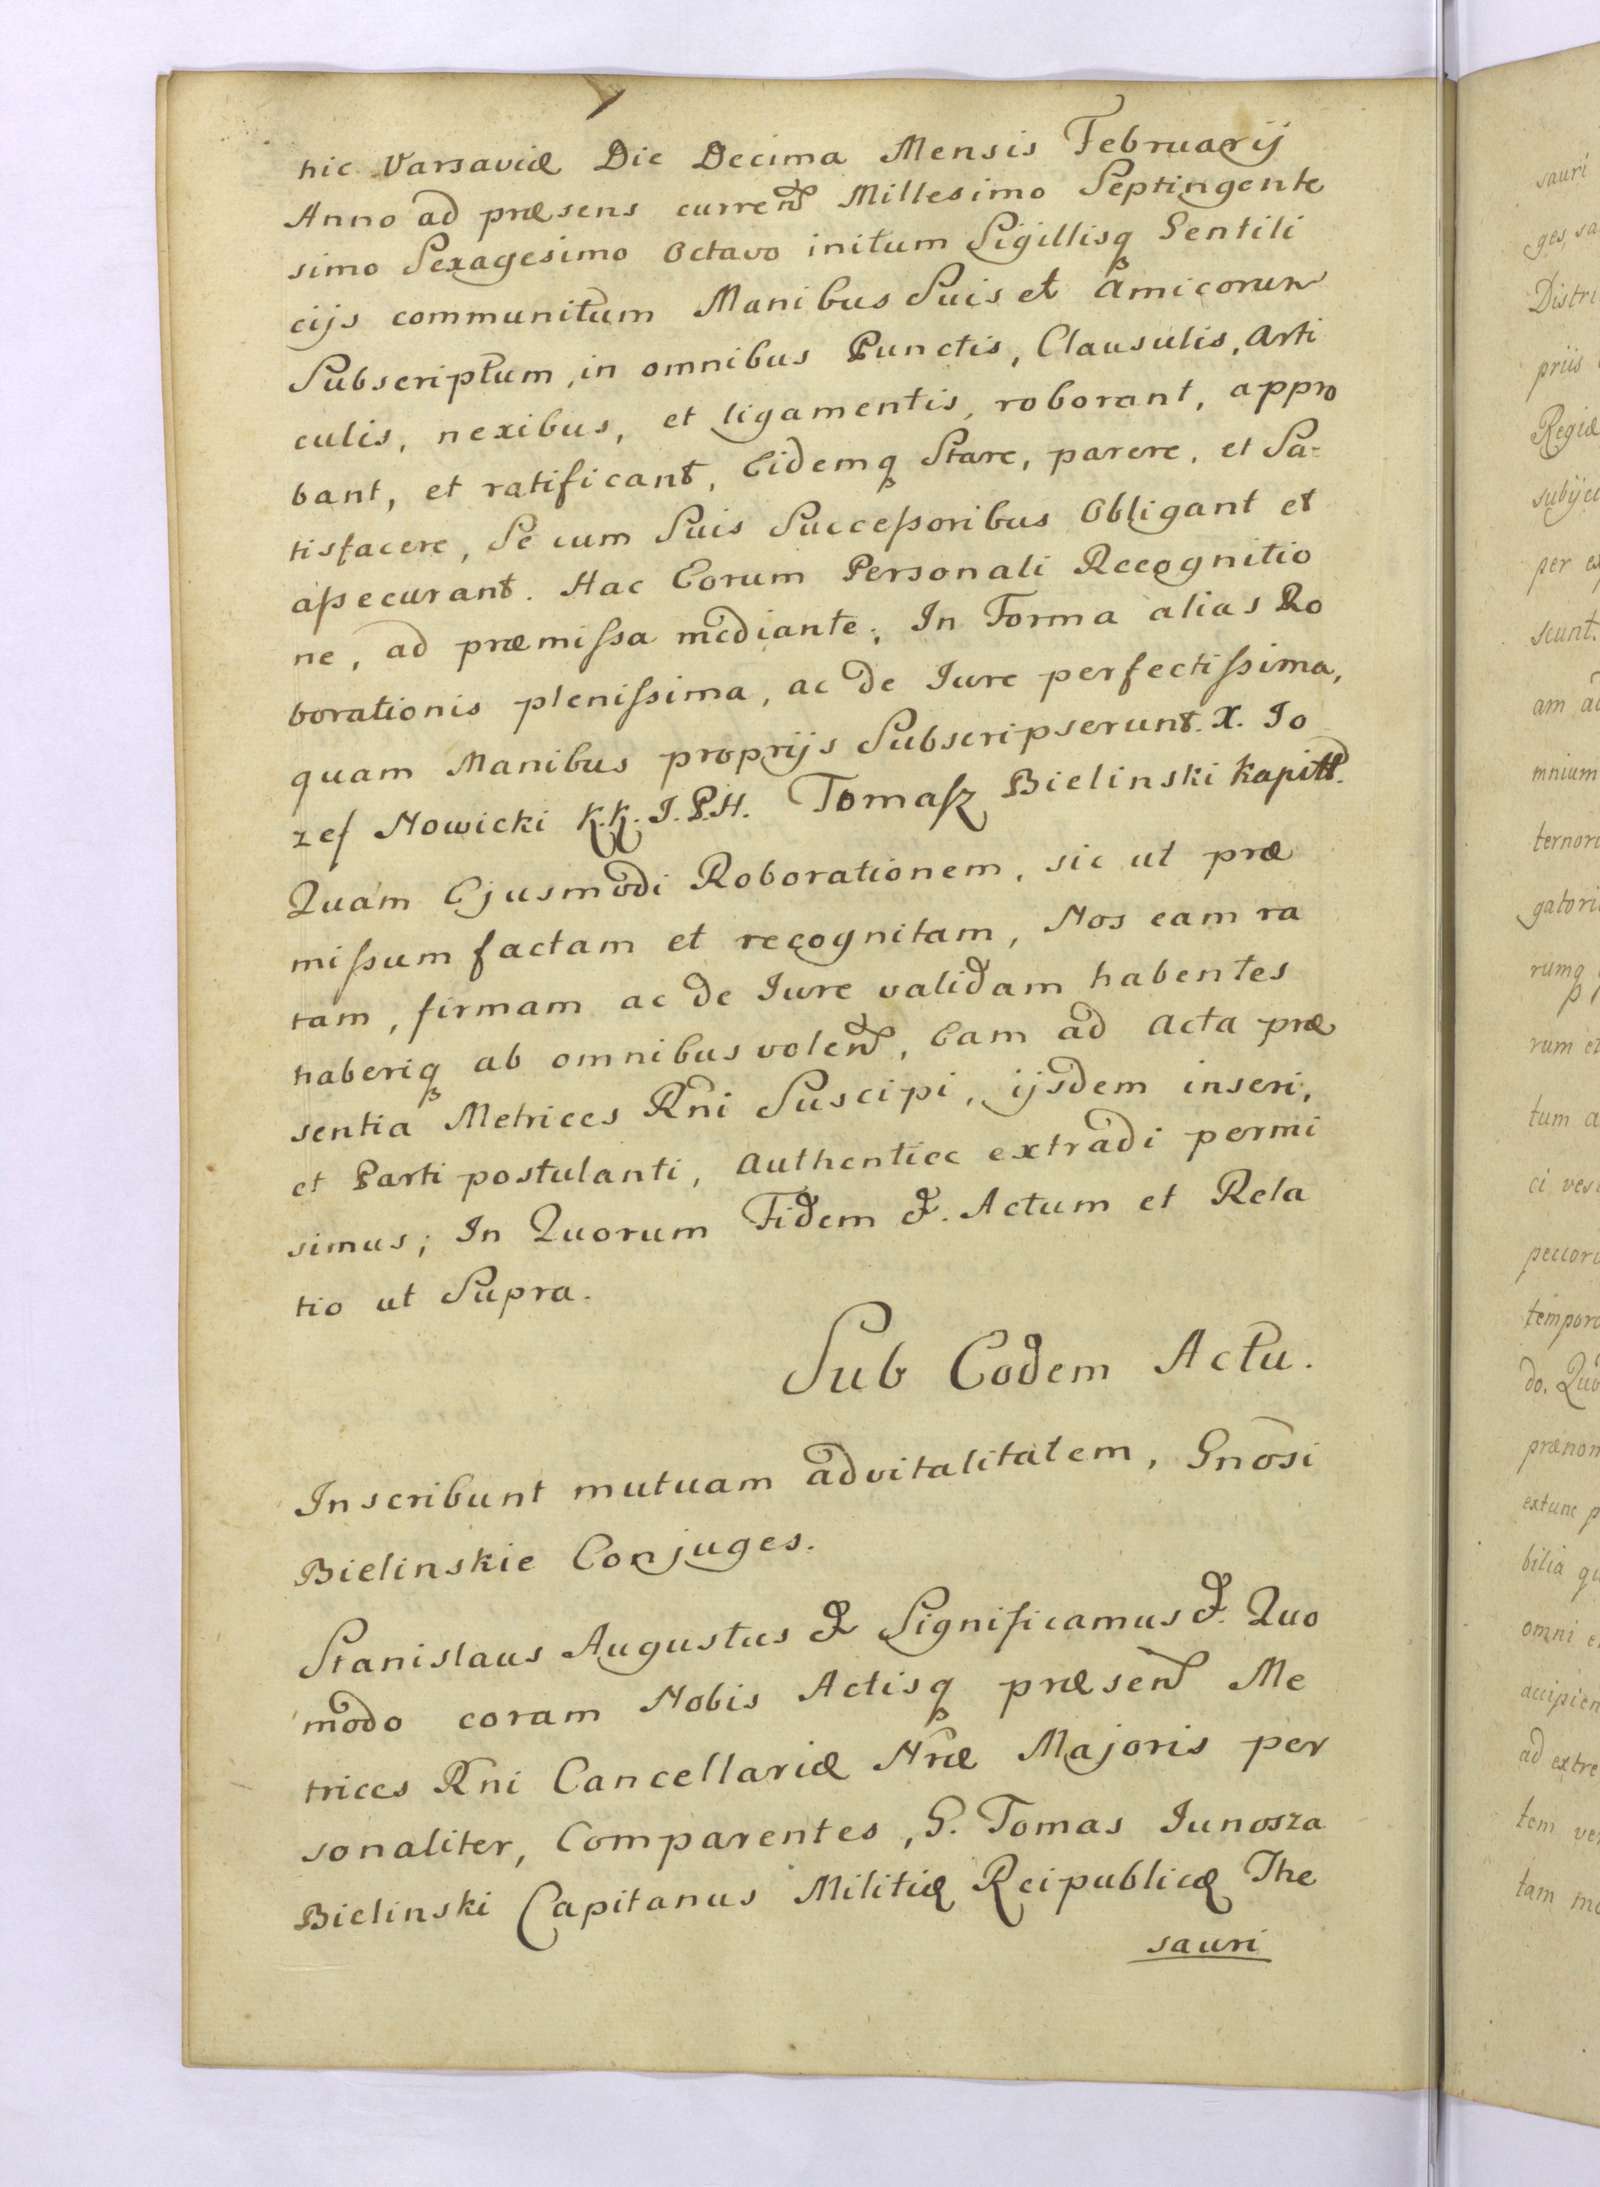 hic Varsaviæ Die Decima Mensis Februarij
Anno ad præsens curren̄ Millesimo Septingente
simo Sexagesimo Octavo initum Sigillisq Gentili
cijs communitum Manibus Suis et amicorum
Subscriptum, in omnibus Punctis, Clausulis, Arti
culis, nexibus, et ligamentis, roborant, appro
bant, et ratificant, Eidemq Stare, parere, et Sa-
tisfacere, Se cum Suis Succeſsoribus Obligant et
aſsecurant. Hac Eorum Personali Recognitio
ne, ad præmiſsa mediante; In Forma alias Ro
borationis pleniſsima, ac de Iure perfectiſsima,
quam Manibus proprijs Subscripserunt. X. Io
zef Nowicki K.K. J. P.H. Tomaſz Bielinski Kapitt.
Quam Ejusmodi Roborationem, sic ut præ
miſsum factam et recognitam, Nos eam ra
tam, firmam ac de Iure validam habentes
haberiq ab omnibus volen̄, Eam ad acta præ
sentia Metrices Rn̄i Suscipi, ijsdem inseri,
et Parti postulanti, authentice extradi permi
simus; In Quorum Fidem &. Actum et Rela
tio ut Supra.
Sub Eodem Actu.
Inscribunt mutuam advitalitatem, Gnosi
Bielinskie Conjuges.
Stanislaus Augustus & Significamus &. Quo
modo coram Nobis Actisq præsen̄ Me
trices Rn̄i Cancellariæ Nræ Majoris per
sonaliter, Comparentes, G. Tomas Junosza
Bielinski Capitanus Militiæ Reipublicæ The
sauri
sauri
ges, sa
Distri
priis
Regiæ
subijci
per ex
scunt.
mnium
rumq
rum et
tum a
tempor
prænom
extunc p
bilia qu
omni e
accipien
ad extre